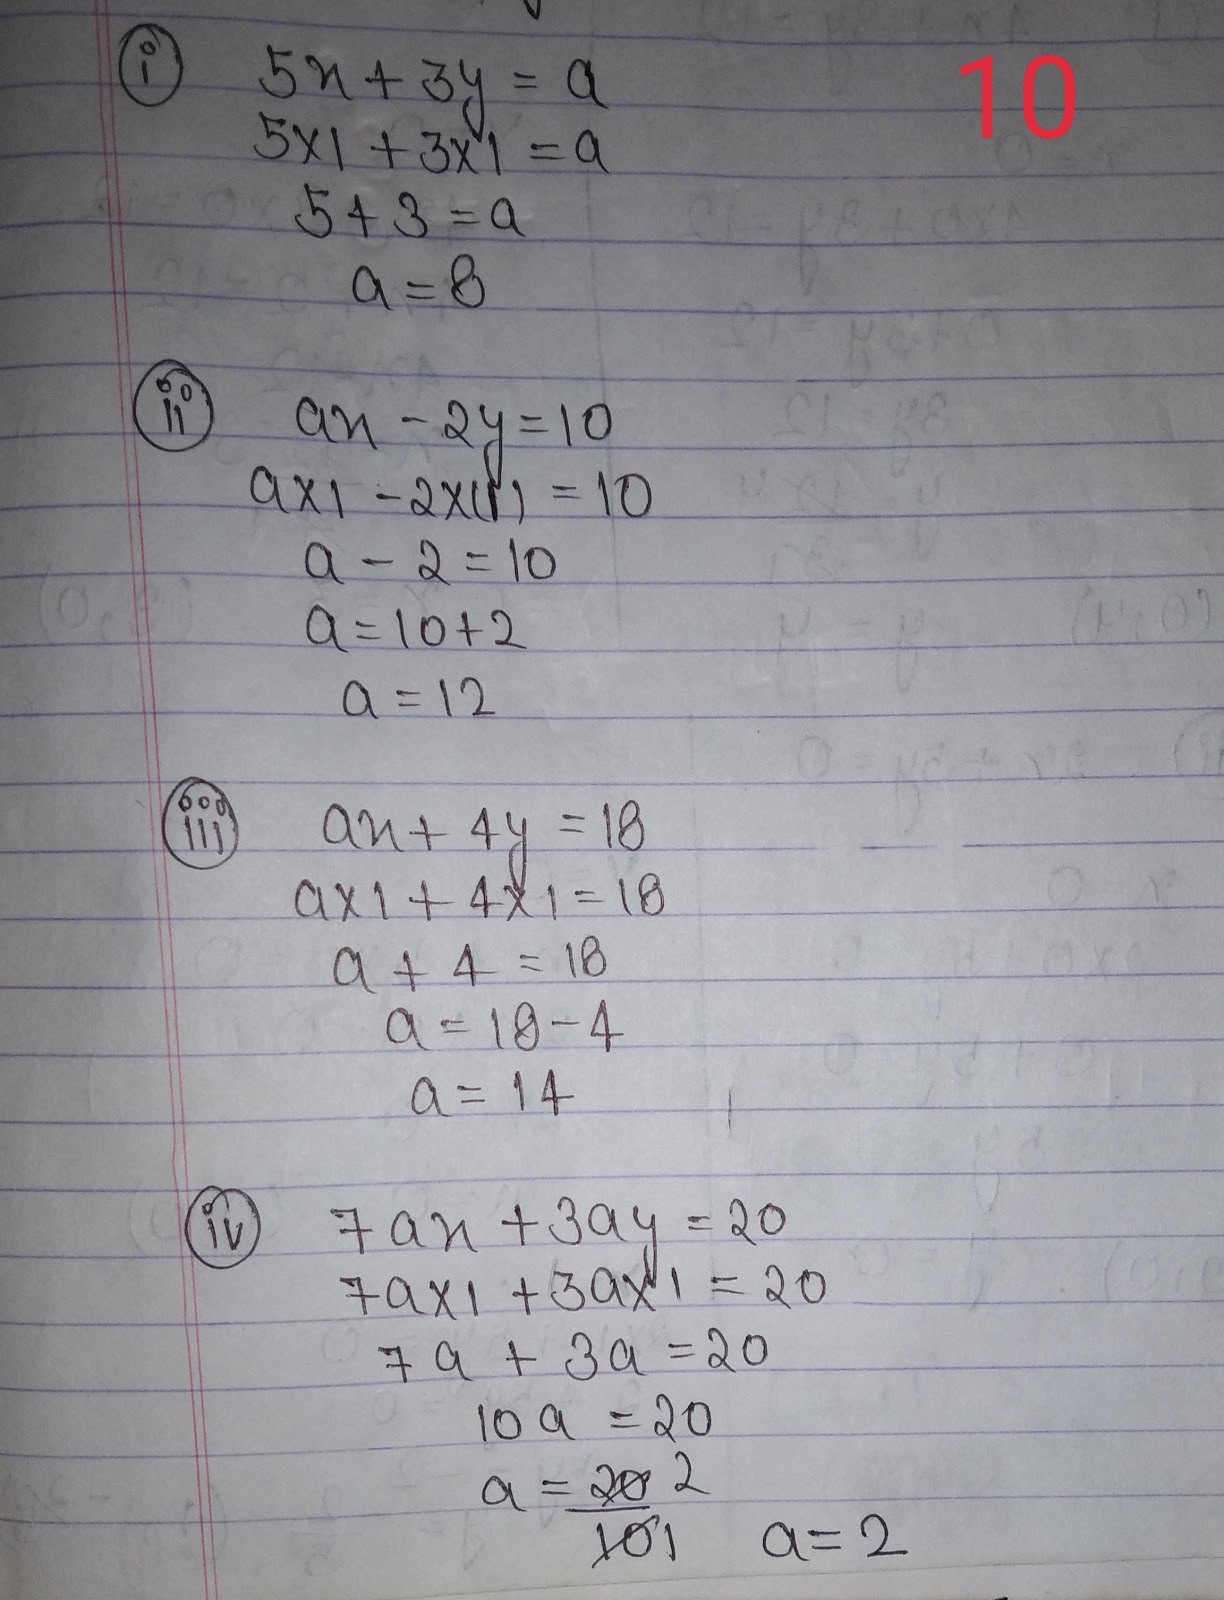 10
i 5x + 3y = a
5x1 + 3x1 = a
5 + 3 = a
a = 8
ii ax - 2y = 10
ax1 - 2x(1) = 10
a - 2 = 10
a = 10 + 2
a = 12
iii ax + 4y = 18
ax1 + 4x1 = 18
a + 4 = 18
a = 18 - 4
a = 14
iv 7ax + 3ay = 20
7ax1 + 3ax1 = 20
7a + 3a = 20
10a = 20
a = 20 2
10 1 a = 2